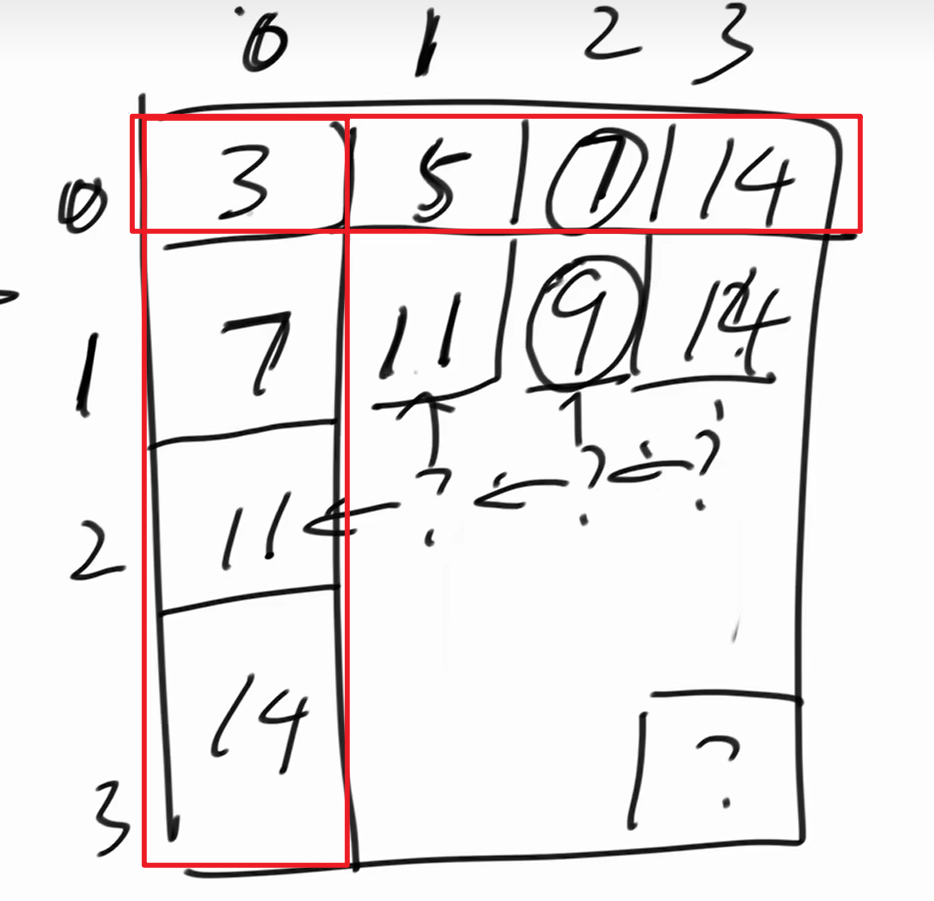 0 1 2 3
0 3 5 7 14
1 7 11 9 14
? ? ?
2 11
14
3 ?